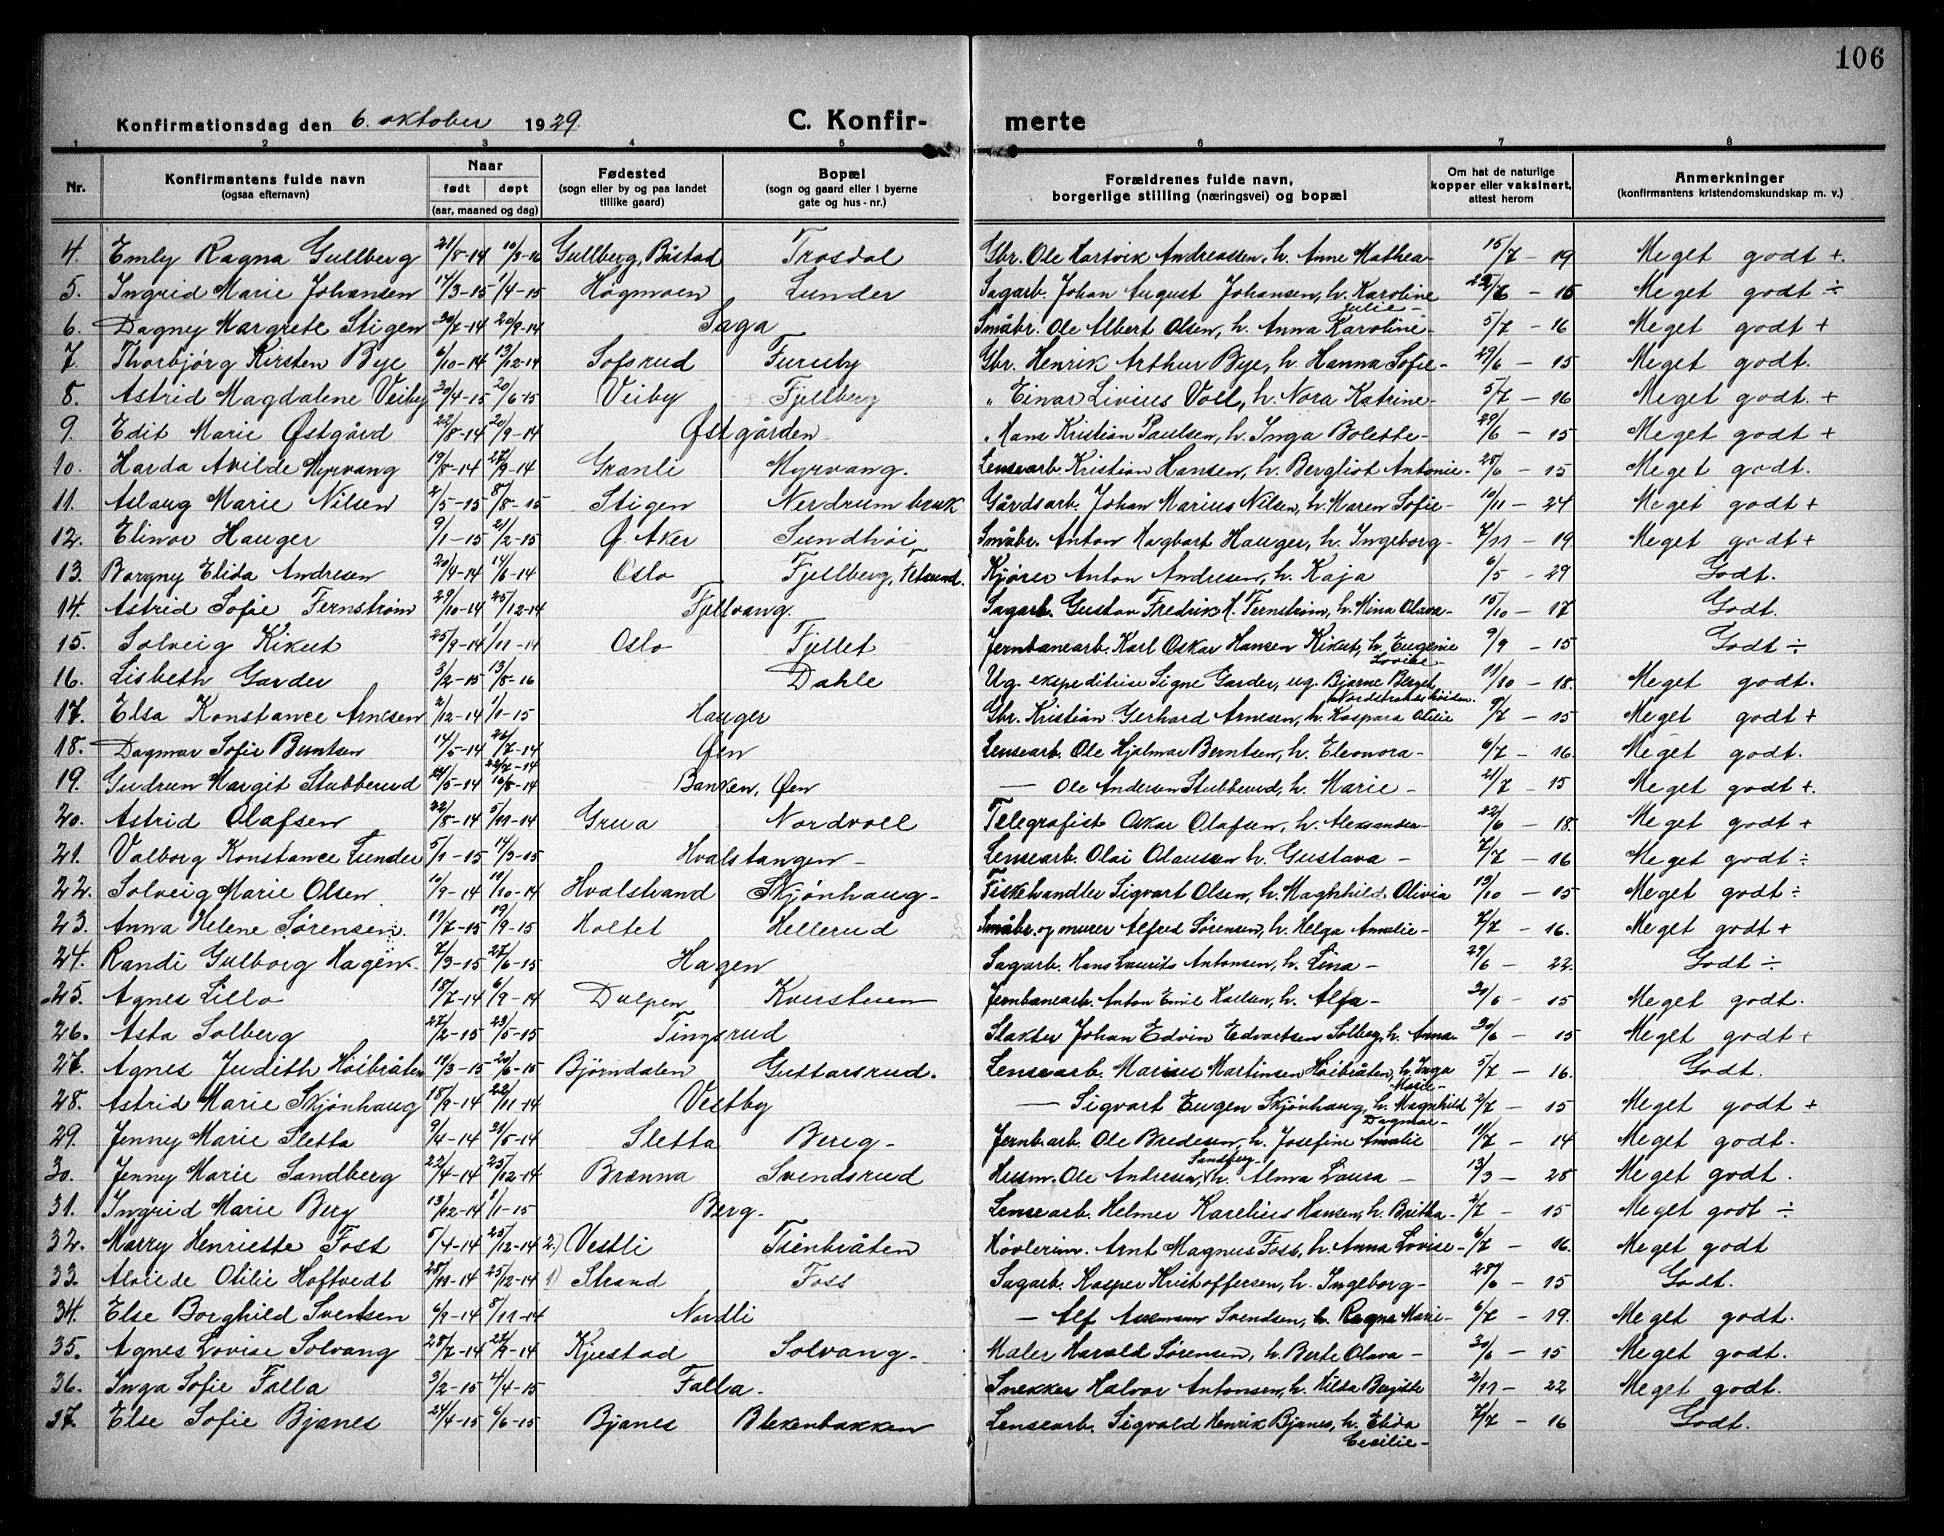 106
Konfirmationsdag den 6. oktober 1929. C. Konfir- merte
1 2 3 4 5 6 7 8
Nr. Konfirmantens fulde navn (ogsaa efternavn) Naar født døpt (aar, maaned og dag) Fødested (sogn eller by og paa landet tillike gaard) Bopæl (sogn og gaard eller i byerne gate og hus-nr.) Forældrenes fulde navn, borgerlige stilling (næringsvei) og bopæl Om hat de naturlige kopper eller vaksinert, attest herom Anmerkninger (konfirmantens kristendomskundskap m. v.)
4. Emly Ragna Gullberg 21/8-14 10/3-16 Gullberg, Båstad Trosdal Gbr. Ole Hartvik Andreassen, h. Anne Mathea- 15/7 - 19 Meget godt +.
5. Ingrid Marie Johansen 17/3-15 1/4-15 Høgmoen Lunder Sagarb. Johan August Johansen, h. Karoline Julie- 15 Meget godt ÷
6. Dagny Margrete Stigen 20/7-14 20/9-14 Saga Småbr. Ole Albert Olsen, h. Anna Karoline- 5/7 - 16 Meget godt +
7. Thorbjørg Kirsten Bye 6/10-14 13/12-14 Sofsrud Furuby Gbr. Henrik Arthur Bye, h. Hanna Sofie- 29/6 - 15 Meget godt.
8. Astrid Magdalene Veiby 30/4-15 20/6-15 Veiby Fjellberg " Einar Livius Voll, h. Nora Katrine- 5/7 - 16 Meget godt. +
9. Edit Marie Østgård 22/8-14 20/9-14 Østgården " Hans Kristian Paulsen, h. Inga Bolette- 29/6 - 15 Meget godt +
10. Harda Avilde Myrvang 19/8-14 27/9-14 Granli Myrvang. Lensearb. Kristian Hansen, h. Bergliot Antonie- 25/6 - 15 Meget godt.
11. Aslaug Marie Nilsen 2/5-15 8/8-15 Stigen Nerdrum bruk Gårdsarb. Johan Marius Nilsen, h. Maren Sofie- 10/11 - 24 Meget godt +
12. Elinor Hauger 9/1-15 21/2-15 Ø. Aker Sundhöi Småbr. Anton Hagbart Hauger, h. Ingeborg- 7/11 - 19. Meget godt +
13. Borgny Elida Andresen 20/4-14 14/6-14 Oslo Fjellberg, Fetsund. Kjører Anton Andresen, h. Kaja 6/5 - 29 Godt.
14. Astrid Sofie Fernstrøm 29/10-14 25/12-14 Fjellvang. Sagarb. Gustav Fredrik H. Fernstrøm, h. Mina Olava- 15/10 - 17 Godt.
15. Solveig Kikut 25/9-14 1/11-14 Oslo Fjellet Jernbanearb. Karl Oskar Hansen Kikut, h. Eugenie Lovise- 9/9 - 15 Godt ÷
16. Lisbeth Garder 3/2-15 13/8-16 Dahle Ug. ekspeditrise Signe Garder, ug. Bjarne Berget, 11/10 - 18. Meget godt.
17. Elsa Konstance Arnesen 2/12-14 1/1-15 Hauger Gbr. Kristian Gerhard Arnesen, h. Kaspara Otilie 9/7 - 15 Meget godt +
18. Dagmar Sofie Berntsen 14/5-14 26/7-14 Øen Lensearb. Ole Hjalmar Berntsen, h. Eleonora- 6/7 - 16. Meget godt.
19. Gudrun Margit Stubberud 24/5-14 22/7-14 16/8-14 Banken, Øen — Ole Andersen Stubberud, h. Marie- 21/7 - 15 Meget godt +.
20. Astrid Olafsen 22/8-14 5/11-14 Grua Nordvoll Telegrafist Oskar Olafsen, h. Aleksandra- 22/6 - 18. Meget godt +
21. Valborg Konstance Lunder 5/1-15 14/3-15 Hvalstangen- Lensearb. Olai Olausen h. Gustava - 7/7 - 16 Meget godt ÷
22. Solveig Marie Olsen. 10/9-14 11/10-14 Hvalstrand Skjönhaug- Fiskehandler Sigvart Olsen, h. Maghhild Olivia 13/10 - 15 Meget godt ÷
23. Anna Helene Sørensen. 17/7-15 19/9-15 Holtet Hellerud Småbr. og murer Alfred Sørensen, h. Helga Amalie- 7/7 - 16. Meget godt +
24. Randi Gulborg Hagen. 7/3-15 27/6-15 Hagen Sagarb. Hans Laurits Antonsen, h. Lina- 29/6 - 22. Godt ÷
25. Agnes Lillo 18/7-14 6/9-14 Dalpen Kverstuen Jernbanearb. Anton Emil Karlsen, h. Alfa- 30/6 - 15 Meget godt.
26. Asta Solberg 27/2-15 23/5-15 Tingsrud Slakter Johan Edvin Edvartsen Solberg, h. Anna- 30/6 - 15 Meget godt +
27. Agnes Judith Höibråten 19/3-15 20/6-15 Bjørndalen Guttarsrud. Lensearb. Marius Martinsen Höibråten, h. Inga Marie- 5/7 - 16. Godt.
28. Astrid Marie Skjönhaug 18/9-14 22/11-14 Vestby — Sigvart Eugen Skjönhaug, h. Magnhild Dagmar- 2/7 - 15 Meget godt +
29. Jenny Marie Sletta 9/4-14 31/5-14 Sletta Bereg- Jernb.arb. Ole Bredesen, h. Josefine Amalie 11/7 - 14 Meget godt.
30. Jenny Marie Sandberg 22/4-14 25/12-14 Brænna Svendsrud Husm. Ole Andresen Sandberg, h. Alma Laura - 13/3 - 28 Meget godt.
31. Ingrid Marie Berg 13/12-14 1/1-15 Berg. Lensearb. Helmer Karelius Hansen, h. Britha- 2/7 - 15 Meget godt ÷
32. Marry Henriette Foss 5/4-14 25/12-14 2.) Vestli Stenbråten Høvlerim. Arnt Magnus Foss, h. Anna Lovise- 6/7 - 16. Meget godt
33. Alvilde Otilie Hoftvedt 28/11-14 25/12-14 1) Strand Foss Sagarb. Kasper Kristoffersen, h. Ingeborg- 28/6 - 15 Godt.
34. Else Borghild Svensen 6/9-14 8/11-14 Nordli — Alf Svendsen, h. Ragna Marie- 6/7 - 19. Meget godt.
35. Agnes Lovise Solvang 28/7-14 27/9-14 Kjestad Solvang- Maler Harald Sørensen, h. Berte Olava - 30/6 - 15 Meget godt.
36. Inga Sofie Falla 3/2-15 4/4-15 Falla. Snekker Halvor Antonsen, h. Hilda Bergitte 2/11 - 22 Meget godt.
37. Else Sofie Bjanes 24/4-15 6/6-15 Bjanes Blekenbakken Lensearb. Sigvald Henrik Bjanes, h. Elida Cecilie- 7/7 - 16 Godt.